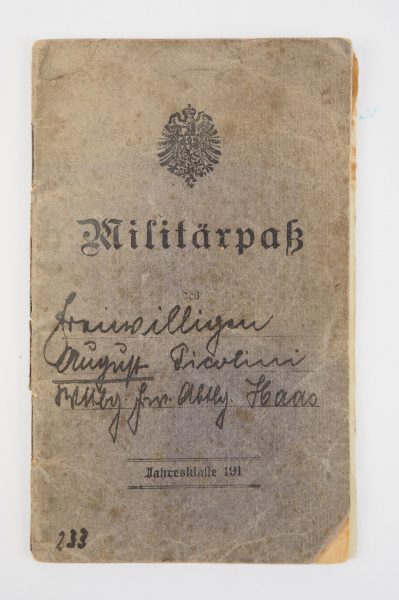 Militärpaß
des
Freiwilligen
August Picolini
Wttbg. Frw. Abtlg. Haas
Jahresklasse 191
233